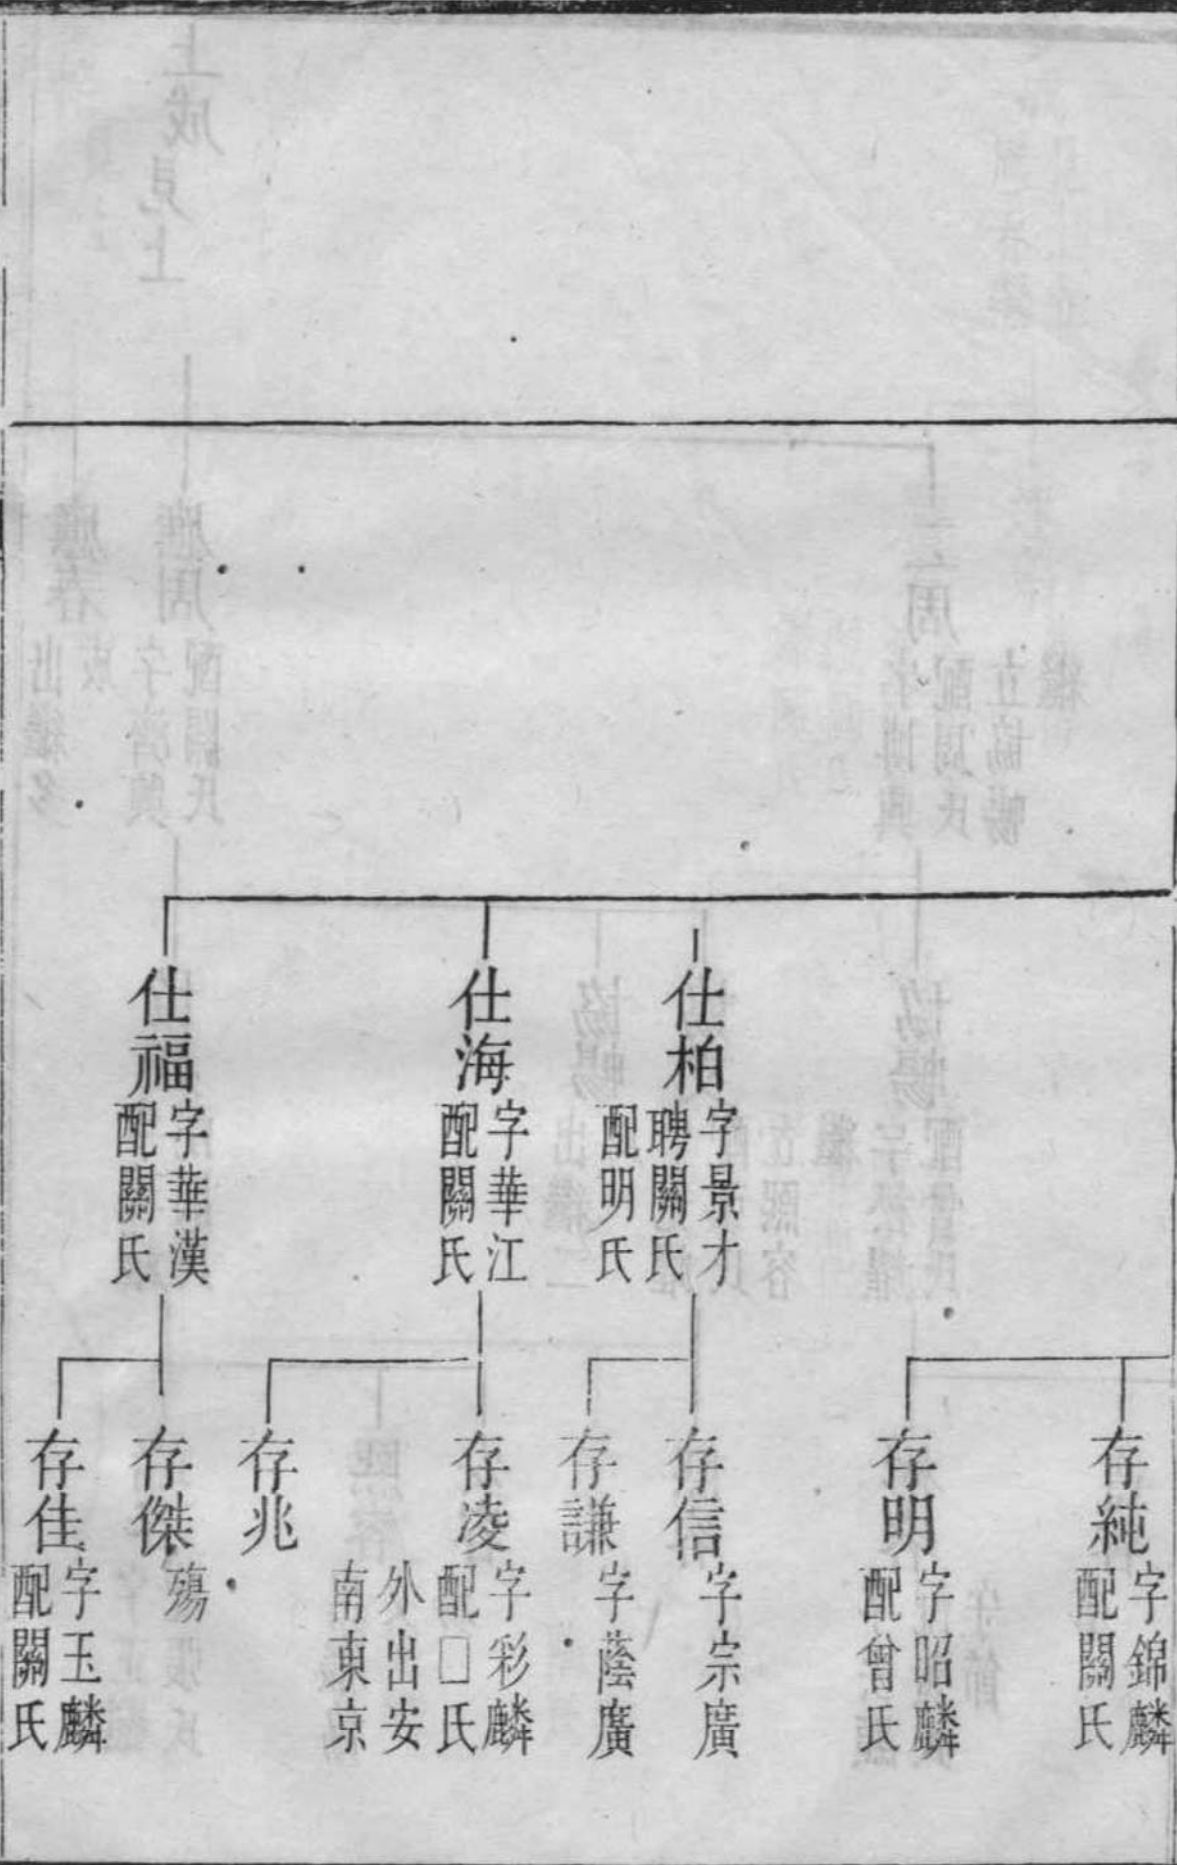 仕柏
字景才
聘關氏
配明氏
仕海
字華江
配關氏
仕福
字華漢
配關氏
存純
字錦麟
配關氏
存明
字昭麟
配曾氏
存信
字宗廣
存謙
字蔭廣
存凌
字彩麟
配□氏
外出安
南東京
存兆
存傑
殤
存佳
字玉麟
配關氏